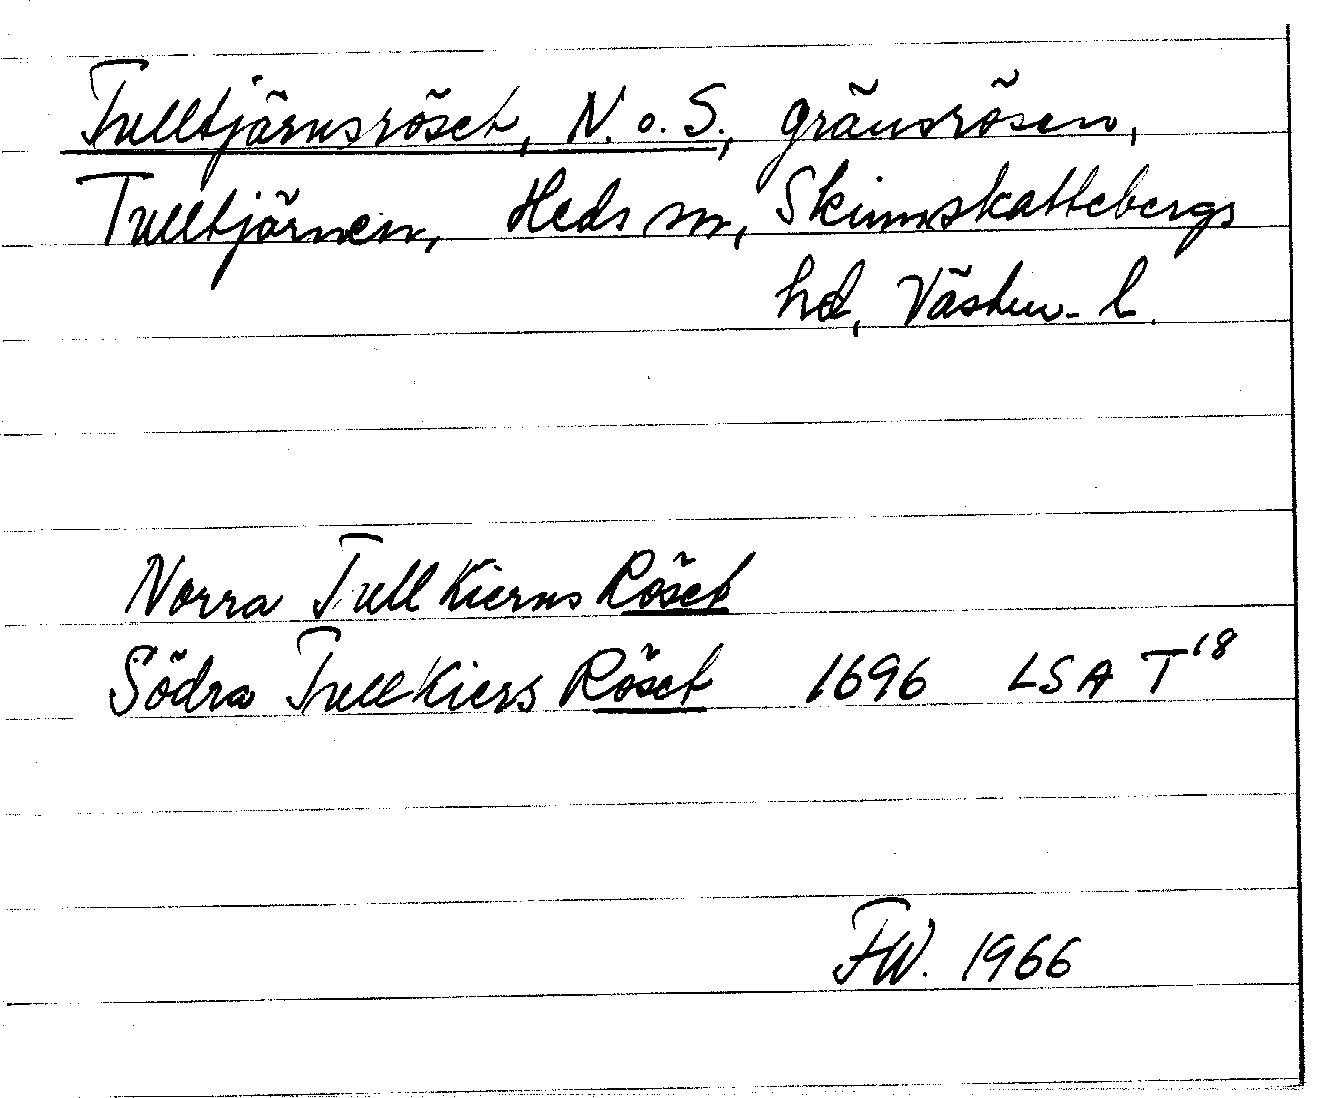 Tulltjärnsröset, N. o. S., gränsrösen,
Tulltjärnen, Heds sn, Skinnskattebergs
hd, Västm. l.
Norra Tull Kierns Röset
Södra Tull Kiers Röset 1696 LSA T18
FW. 1966